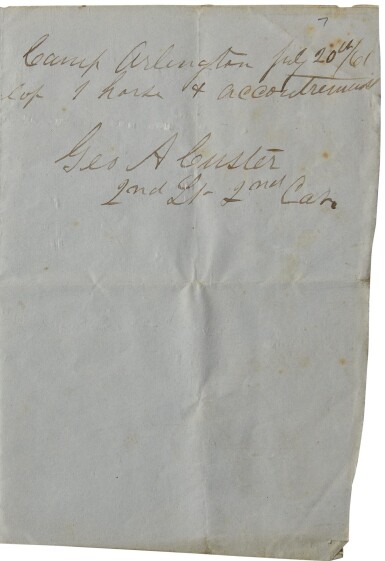 Camp Arlington July 20th/61
1 horse & accoutrements
Geo A Custer
2nd Lt 2nd Cav.